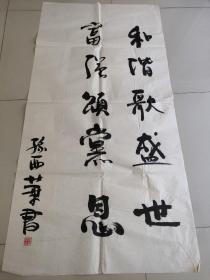 和谐歌盛世
富强颂党恩
孙西华书